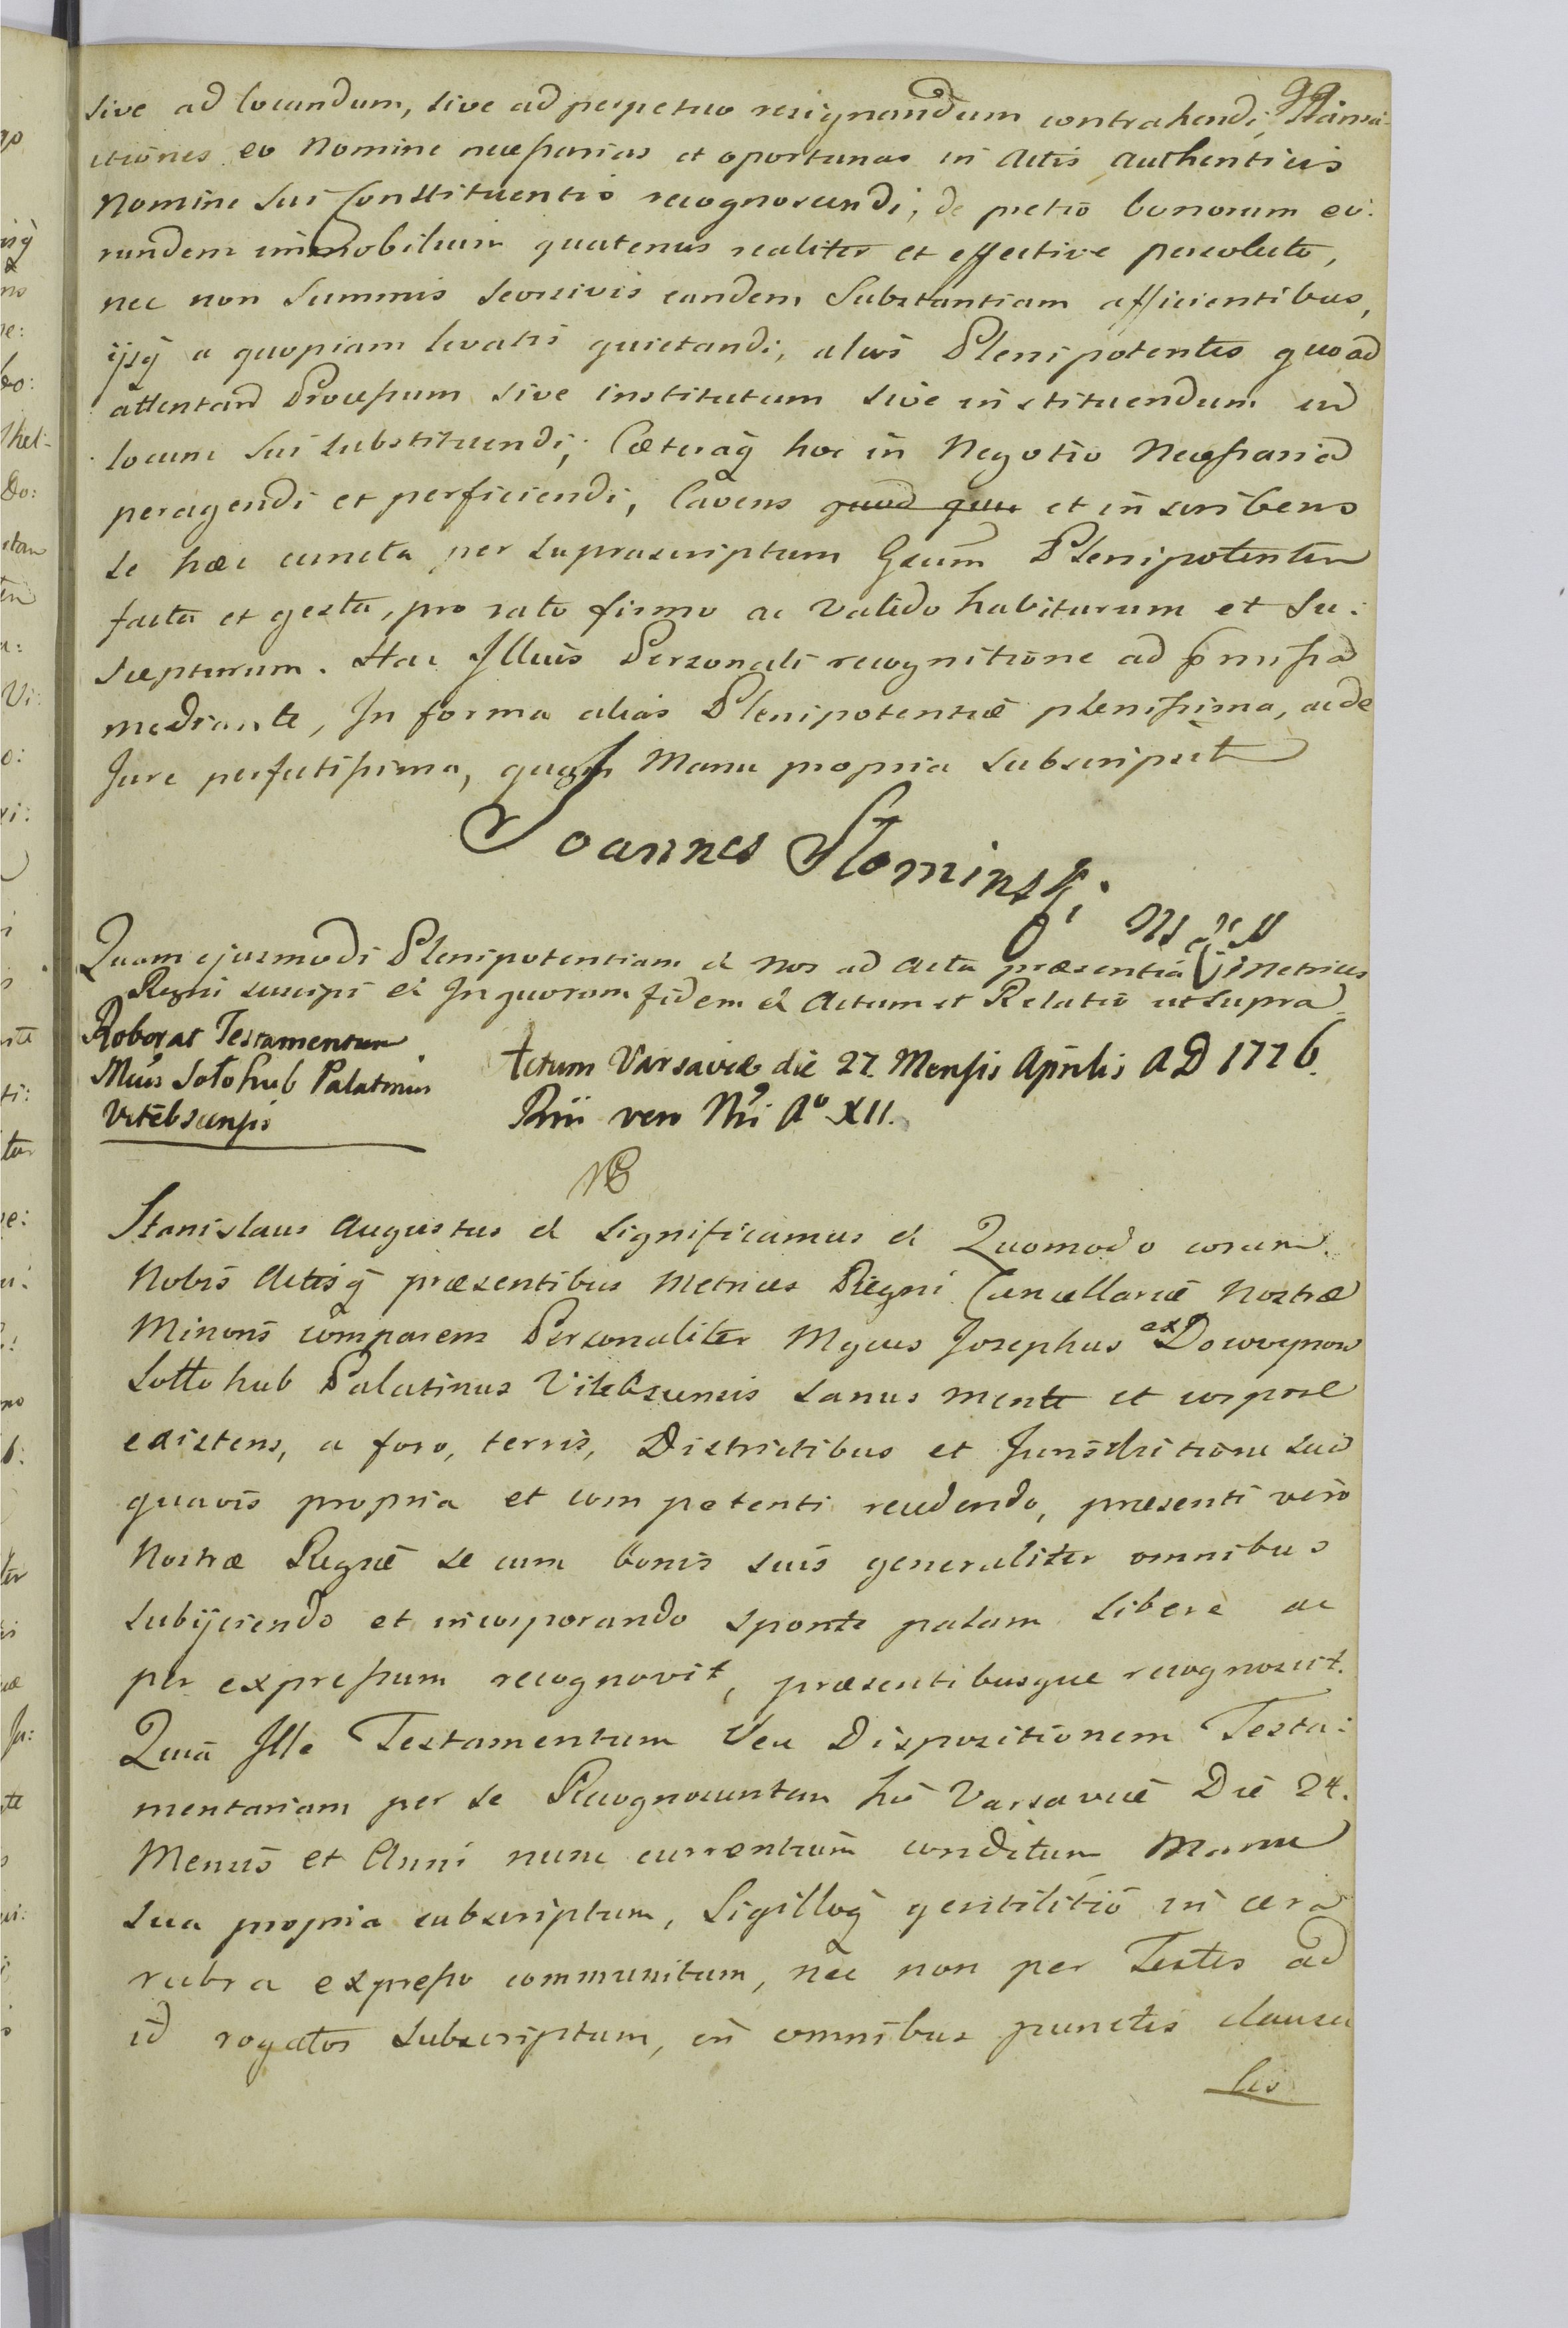 sive ad locandum, sive ad perpetuo resignandum contrahendi, Transa-
ctiones eo Nomine necessarias et oportunas in Actis Authenticis
Nomine sui Constituentis recognoscendi, de pretio bonorum eo:
rundem immobilium quatenus realiter et effective persoluto,
nec non Summis Seorsivis eandem Substantiam afficientibus,
ijsq a quopiam levatis quietandi, alios Plenipotentes quoad
attentand Processum sive institutum sive instituendum in
locum sui substituendi; Cæteraq hoc in Negotio Necessaria
peragendi et perficiendi, Cavens quod quæ et inscribens
se hæc cuncta per suprascriptum Gsum Plenipotentem
facta et gesta, pro rato firmo ac valido habiturum et su:
scepturum. Hac Illius Personali recognitione ad pmissa
mediante, In forma alias Plenipotentiæ plenissima, ac de
Jure perfectissima, quam Manu propria subscripsit
Joannes Słominski
Quam ejusmodi Plenipotentiam et Nos ad Acta præsentia Metrices
Regni suscipi et In quorum fidem et Actum et Relatio ut supra
Roborat Testamentum
Mcus Sołohub Palatinus
Vitebscensis
Actum Varsaviæ die 27. Mensis Aprilis AD 1776.
Rni vero Nri Ao XII.
NB
Stanislaus Augustus et Significamus et Quomodo coram
Nobis Actisq præsentibus Metrices Regni Cancellariæ Nostræ
Minoris comparens Personaliter Mgcus Josephus ex Dowoynow
Sottohub Palatinus Vitebscensis sanus mente et corpore
existens, a foro, terris, Districtibus et Jurisdictione sua
quavis propria et competenti recedendo, præsenti vero
Nostræ Regiæ se cum bonis suis generaliter omnibus
subijciendo et incorporando sponte palam libere ac
per expressum recognovit, præsentibusque recognoscit.
Quia Ille Testamentum seu Dispositionem Testa:
mentariam per se Recognoscentem hic Varsaviæ Die 24.
Mensis et Anni nunc currentium conditum Manu
sua propria subscriptum, Sigilloq gentilitio in cera
rubra expresso communitum, nec non per Testes ad
id rogatos subscriptum, in omnibus punctis clausu
lis